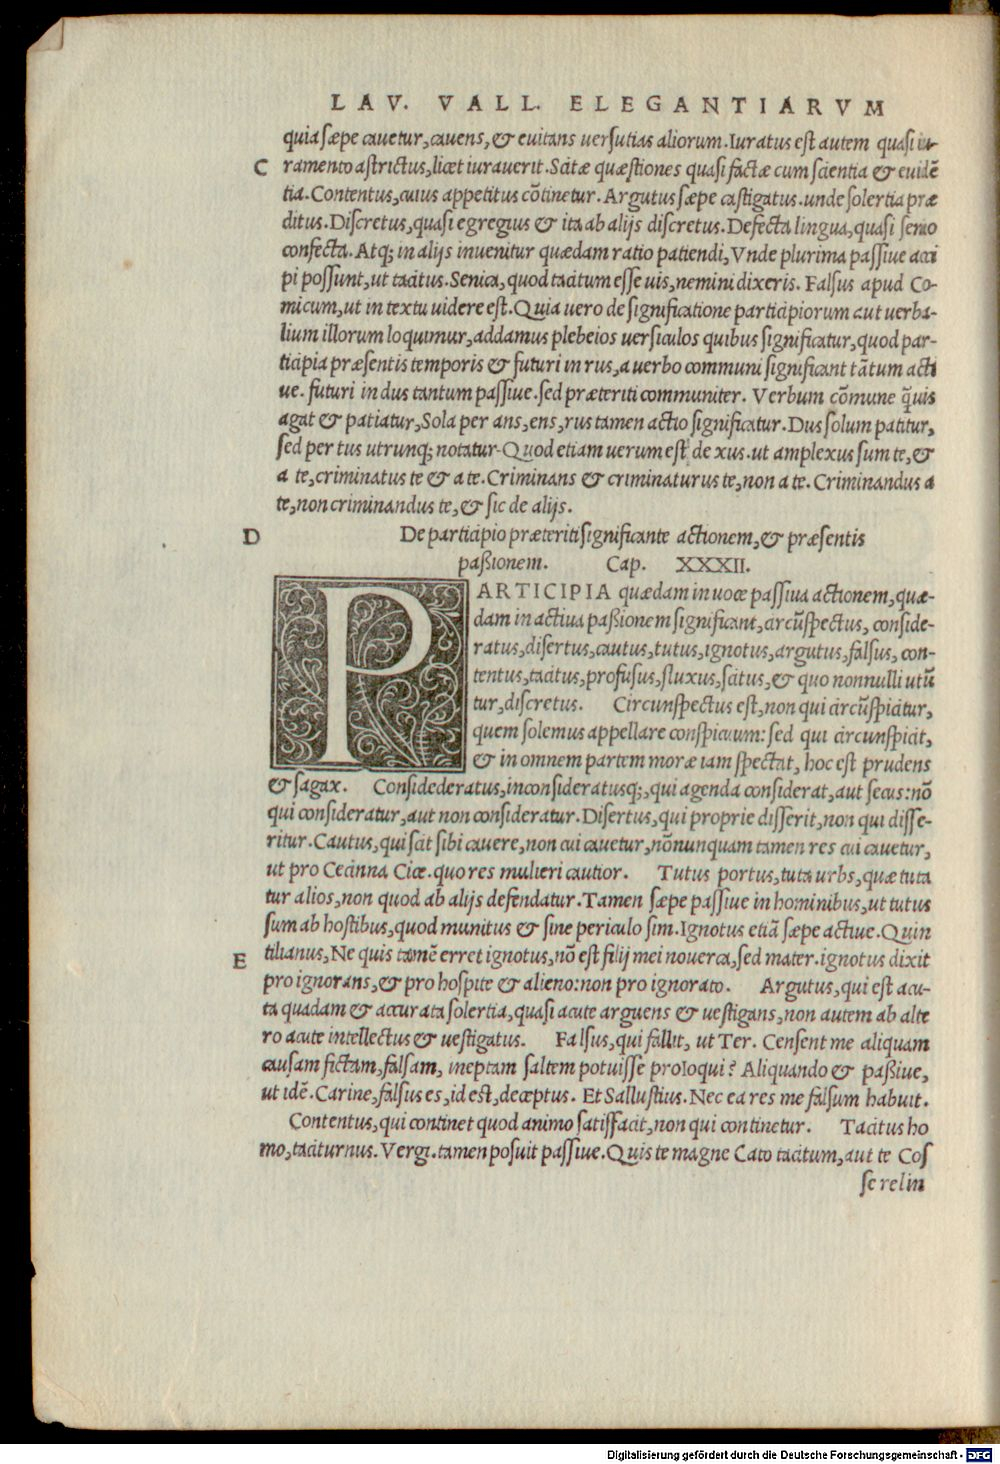 LAV. VALL. ELEGANTIARVM
quia sæpe cauetur, cauens, & euitans uersutias aliorum. Iuratus est autem quasi iu-
C ramento astrictus, licet iurauerit. Scitæ quæstiones quasi factæ cum scientia & euidē
tia. Contentus, cuius appetitus cōtinetur. Argutus sæpe castigatus. unde solertia præ
ditus. Discretus, quasi egregius & ita ab alijs discretus. Defecta lingua, quasi senio
confecta. Atq; in alijs inuenitur quædam ratio patiendi, Vnde plurima passiue acci
pi possunt, ut tacitus. Senica, quod tacitum esse uis, nemini dixeris. Falsus apud Co-
micum, ut in textu uidere est. Quia uero de significatione participiorum aut uerba-
lium illorum loquimur, addamus plebeios uersiculos quibus significatur, quod par-
ticipia præsentis temporis & futuri in rus, a uerbo communi significant tātum acti
ue. futuri in dus tantum passiue. sed præteriti communiter. Verbum cōmune q̄uis
agat & patiatur, Sola per ans, ens, rus tamen actio significatur. Dus solum patitur,
sed per tus utrunq; notatur. Quod etiam uerum est de xus. ut amplexus sum te, &
a te, criminatus te & a te. Criminans & criminaturus te, non a te. Criminandus a
te, non criminandus te, & sic de alijs.
D De participio præteriti significante actionem, & præsentis
paßionem. Cap. XXXII.
PARTICIPIA quædam in uoce passiua actionem, quæ-
dam in actiua paßionem significant, circūspectus, conside-
ratus, disertus, cautus, tutus, ignotus, argutus, falsus, con-
tentus, tacitus, profusus, fluxus, scitus, & quo nonnulli utū
tur, discretus. Circunspectus est, non qui circūspicitur,
quem solemus appellare conspicuum: sed qui circunspicit,
& in omnem partem moræ iam spectat, hoc est prudens
& sagax. Considederatus, inconsideratusq;, qui agenda considerat, aut secus: nō
qui consideratur, aut non consideratur. Disertus, qui proprie disserit, non qui disse-
ritur. Cautus, qui scit sibi cauere, non cui cauetur, nōnunquam tamen res cui cauetur,
ut pro Cecinna Cice. quo res mulieri cautior. Tutus portus, tuta urbs, quæ tuta
tur alios, non quod ab alijs defendatur. Tamen sæpe passiue in hominibus, ut tutus
sum ab hostibus, quod munitus & sine periculo sim. Ignotus etiā sæpe actiue. Quin
E tilianus, Ne quis tamē erret ignotus, nō est filij mei nouerca, sed mater. ignotus dixit
pro ignorans, & pro hospite & alieno: non pro ignorato. Argutus, qui est acu-
ta quadam & accurata solertia, quasi acute arguens & uestigans, non autem ab alte
ro acute intellectus & uestigatus. Falsus, qui fallit, ut Ter. Censent me aliquam
causam fictam, falsam, ineptam saltem potuisse proloqui? Aliquando & paßiue,
ut idē. Carine, falsus es, id est, deceptus. Et Sallustius. Nec ea res me falsum habuit.
Contentus, qui continet quod animo satisfacit, non qui continetur. Tacitus ho
mo, taciturnus. Verg. tamen posuit passiue. Quis te magne Cato tacitum, aut te Cos
se relin
Digitalisierung gefördert durch die Deutsche Forschungsgemeinschaft - DFG